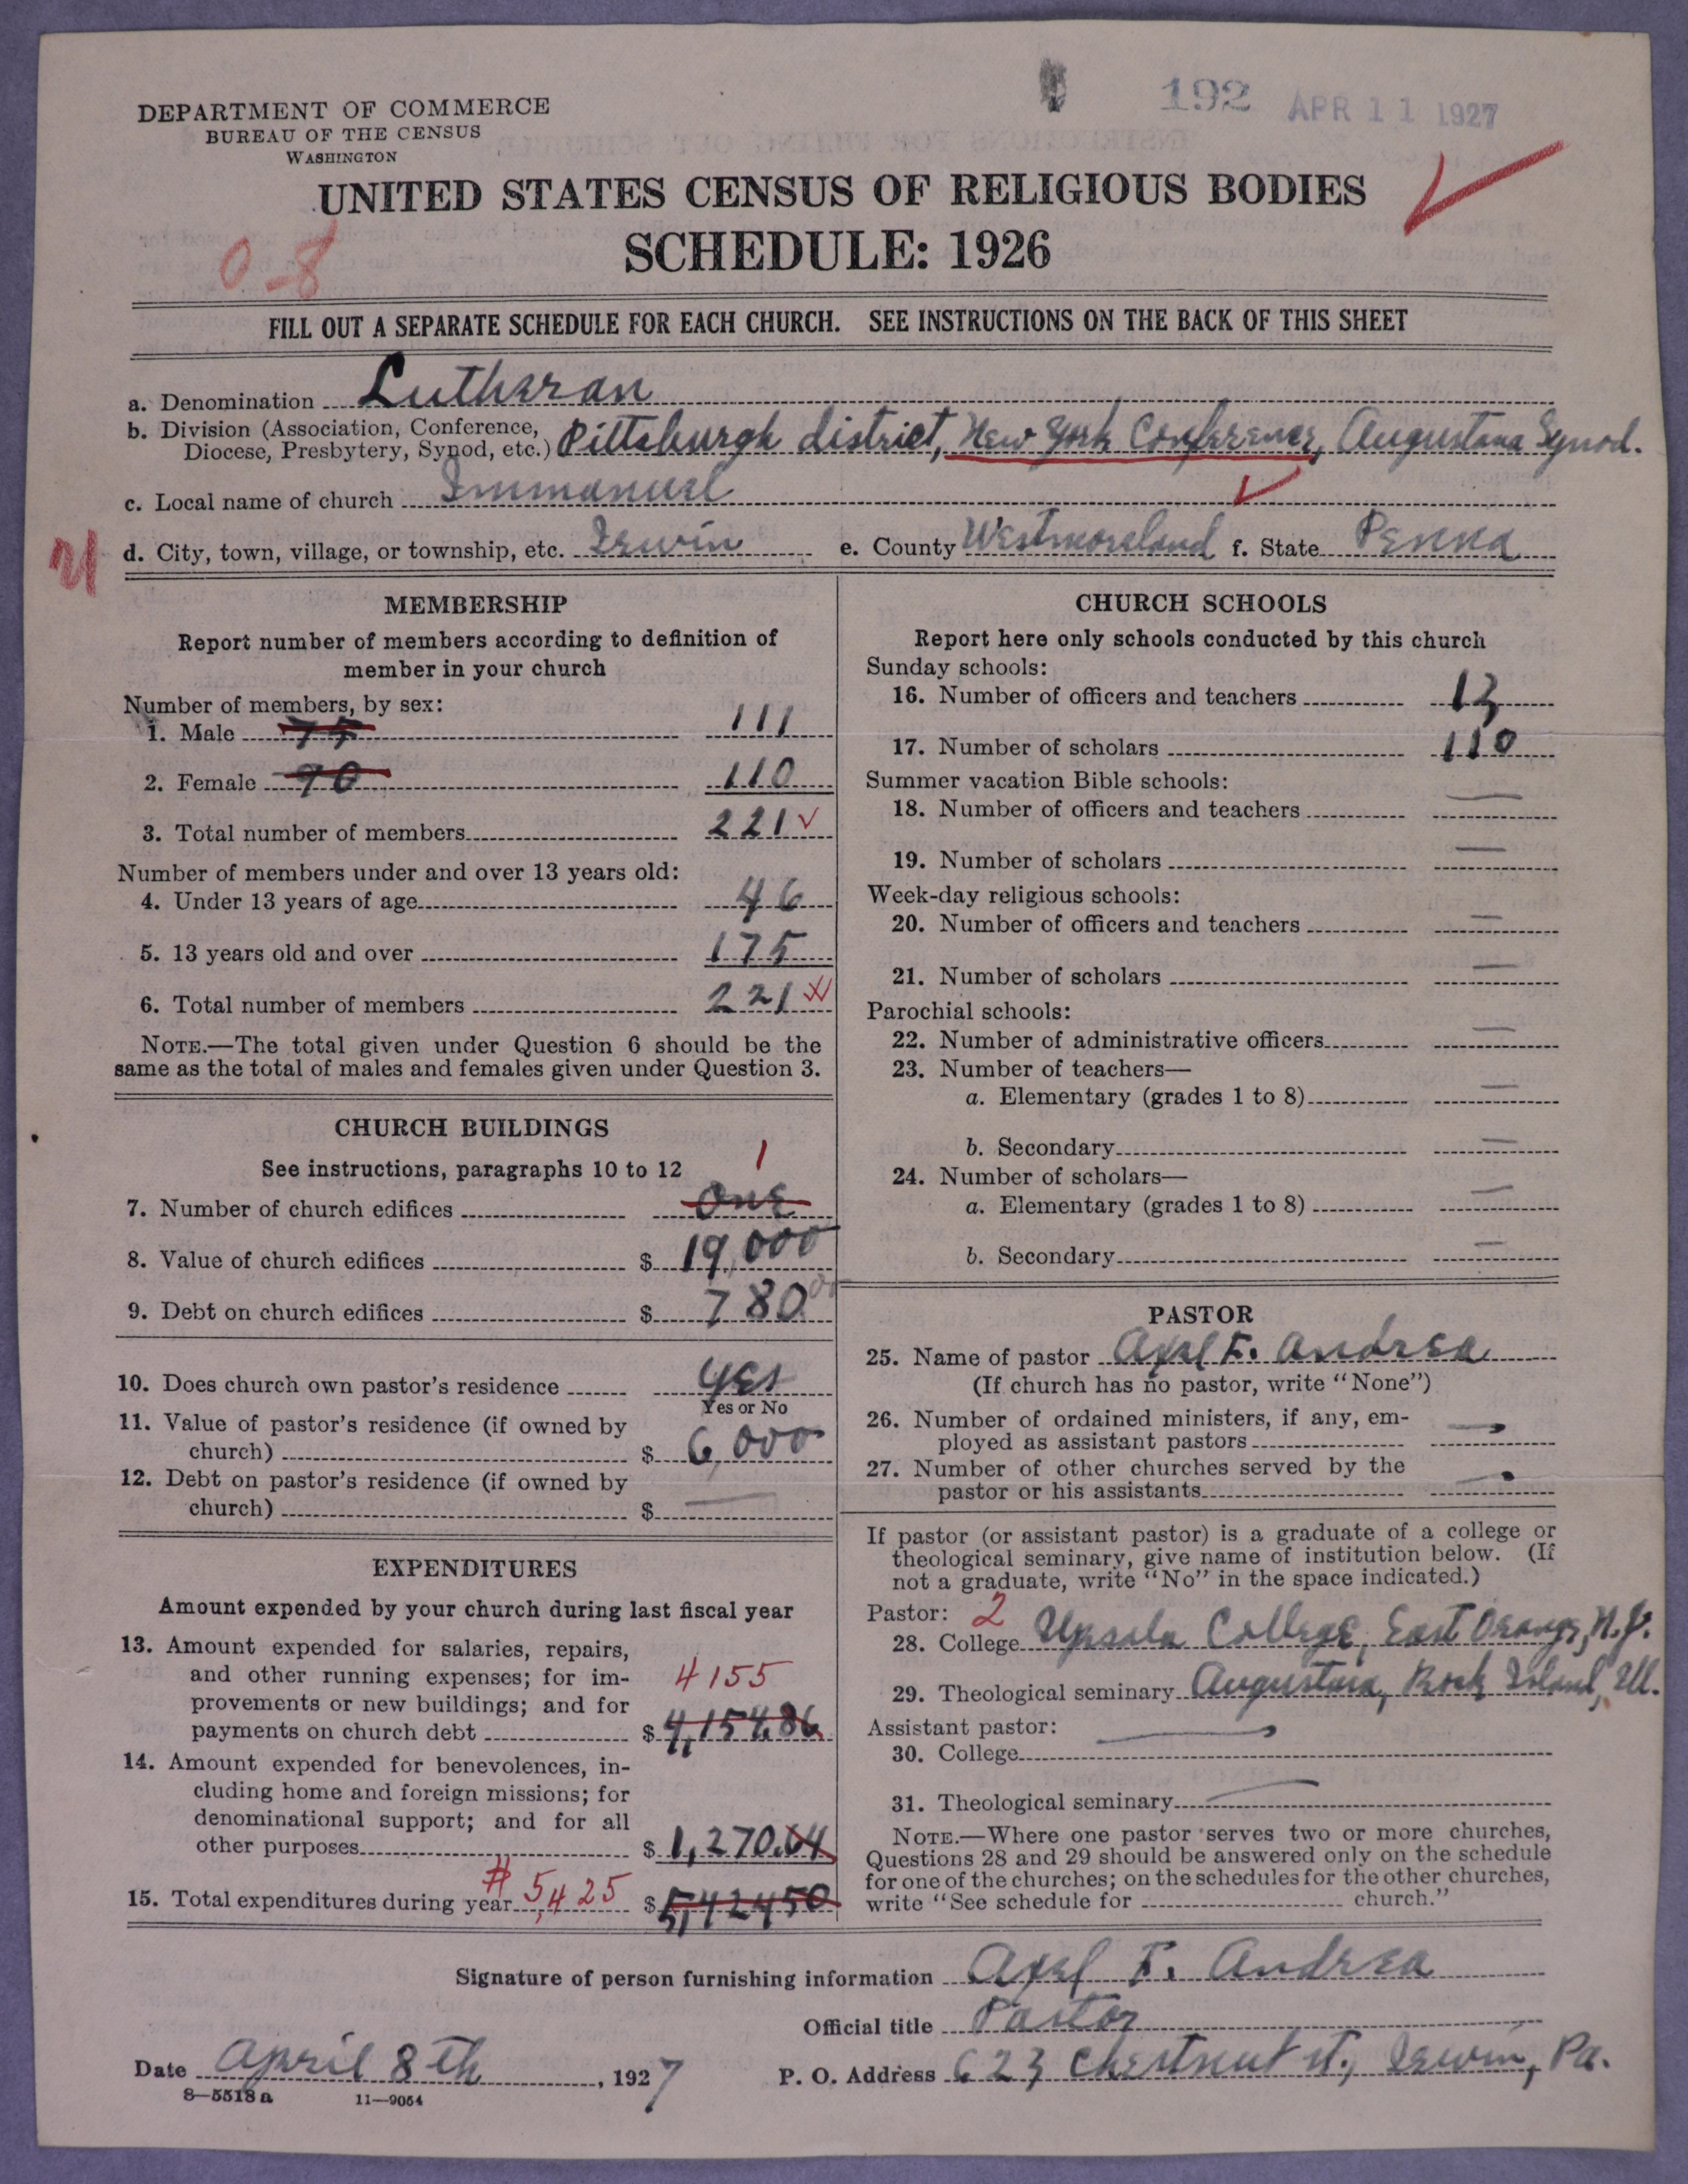 192 APR 11 1927
DEPARTMENT OF COMMERCE
BUREAU OF THE CENSUS
WASHINGTON
UNITED STATES CENSUS OF RELIGIOUS BODIES
SCHEDULE: 1926
0-8
FILL OUT A SEPARATE SCHEDULE FOR EACH CHURCH. SEE INSTRUCTIONS ON THE BACK OF THIS SHEET
a. Denomination Lutheran
b. Division (Association, Conference,
Diocese, Presbytery, Synod, etc.) Pittsburgh district, New York Conference, Augustana Synod.
c. Local name of church Immanuel
d. City, town, village, or township, etc. Irwin e. County Westmoreland f. State Penna
MEMBERSHIP
Report number of members according to definition of
member in your church
Number of members, by sex:
1. Male 75 111
2. Female 90 110
3. Total number of members 221
Number of members under and over 13 years old:
4. Under 13 years of age 46
5. 13 years old and over 175
6. Total number of members 221
NOTE.—The total given under Question 6 should be the
same as the total of males and females given under Question 3.
CHURCH BUILDINGS
See instructions, paragraphs 10 to 12
1
7. Number of church edifices One
8. Value of church edifices $ 19,000
9. Debt on church edifices $ 780.00
10. Does church own pastor's residence yes
Yes or No
11. Value of pastor's residence (if owned by
church) $ 6,000
12. Debt on pastor's residence (if owned by
church) $ —
EXPENDITURES
Amount expended by your church during last fiscal year
13. Amount expended for salaries, repairs,
and other running expenses; for im-
provements or new buildings; and for
4155
payments on church debt $ 4,154.86
14. Amount expended for benevolences, in-
cluding home and foreign missions; for
denominational support; and for all
other purposes $ 1,270.64
15. Total expenditures during year 5,425 $ 5,424.50
CHURCH SCHOOLS
Report here only schools conducted by this church
Sunday schools:
16. Number of officers and teachers 13
17. Number of scholars 110
Summer vacation Bible schools:
18. Number of officers and teachers —
19. Number of scholars —
Week-day religious schools:
20. Number of officers and teachers —
21. Number of scholars —
Parochial schools:
22. Number of administrative officers —
23. Number of teachers—
a. Elementary (grades 1 to 8) —
b. Secondary —
24. Number of scholars—
a. Elementary (grades 1 to 8) —
b. Secondary —
PASTOR
25. Name of pastor Axel F. Andrea
(If church has no pastor, write "None")
26. Number of ordained ministers, if any, em-
ployed as assistant pastors —
27. Number of other churches served by the
pastor or his assistants —
If pastor (or assistant pastor) is a graduate of a college or
theological seminary, give name of institution below. (If
not a graduate, write "No" in the space indicated.)
Pastor: 2
28. College Upsala College, East Orange, N.J.
29. Theological seminary Augustana, Rock Island, Ill.
Assistant pastor:
30. College —
31. Theological seminary —
NOTE.—Where one pastor serves two or more churches,
Questions 28 and 29 should be answered only on the schedule
for one of the churches; on the schedules for the other churches,
write "See schedule for church."
Signature of person furnishing information Axel F. Andrea
Official title Pastor
Date April 8th, 1927 P. O. Address 623 Chestnut st., Irwin, Pa.
8—5518 a 11—9054